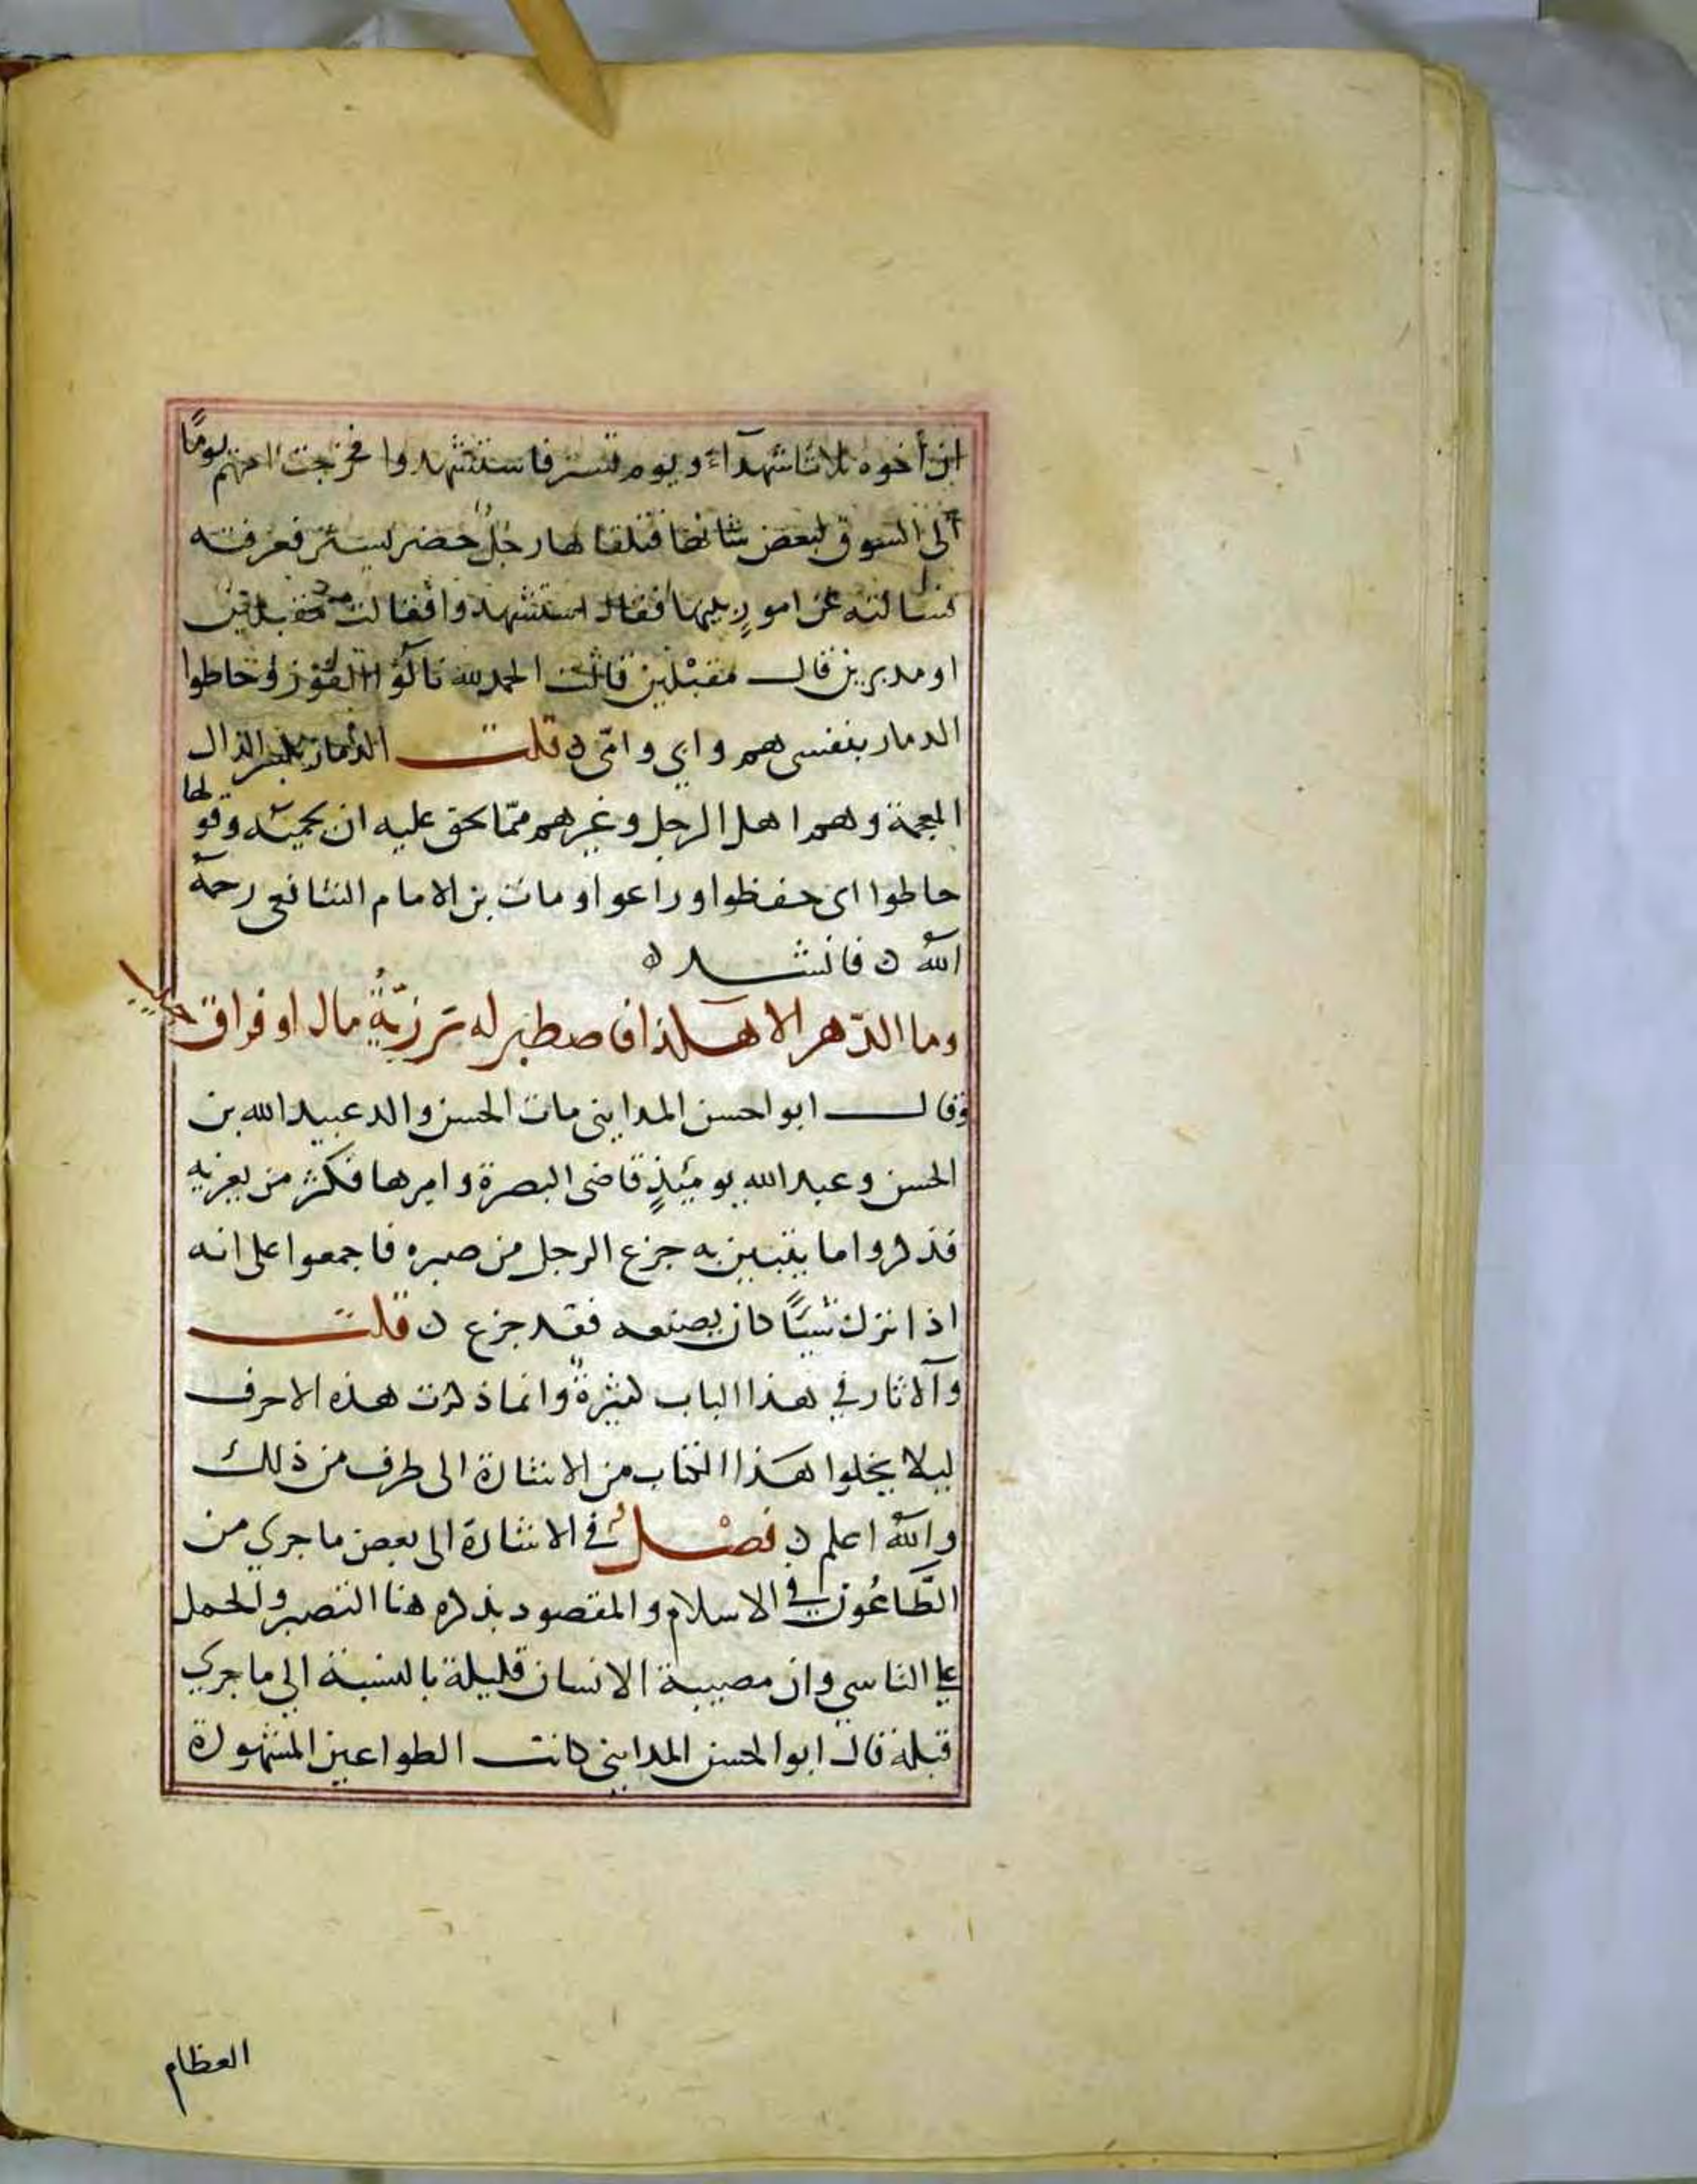 ان أخوه ثلاثا شهدآء ويوم تستر فاستشهدوا فخرجت امهم يومًا
الى السوق لبعض شانها فتلقاها رجل حضر تستر فعرفته
فسالته عن امور بنيها فقال استشهدوا فقالت مقبلين
او مدبرين قال مقبلين قالت الحمد لله نالوا الفوز وحاطوا
الدمار بنفسي هم وابي وامّي ن قلت الذمار بكسر الذال
المعجمة وهم اهل الرجل وغيرهم ممّا يحق عليه ان يحميه وقولها
حاطوا اى حفظوا وراعوا ومات بن الامام الشافعى رحمة
الله ن فانشد ن
وما الدّهر الا هكذا فاصطبر له رزيّةُ مال او فراق حبيب
وقال ابو احسن المدايني مات الحسن والد عبيد الله بن
الحسن وعبد الله يومئذٍ قاضى البصرة واميرها فكثر من يعزيه
فذكروا ما يتبين به جزع الرجل من صبره فاجمعوا على انه
اذا نزك شيئًا كان يصنعه فقد جزع ن قلت
والآثار في هذا الباب كثيرة وانما ذكرت هذه الاحرف
ليلا يخلوا هذا الكتاب من الاشارة الى طرف من ذلك
والله اعلم ن فصل في الاشارة الى بعض ما جري من
الطَّاعُون في الاسلام والمقصود بذكره هنا التصبر والحمل
على التاسي وان مصيبة الانسان قليلة بالنسبة الي ما جري
قبله قال ابو الحسن المدايني كانت الطواعين المشهورة
العظام